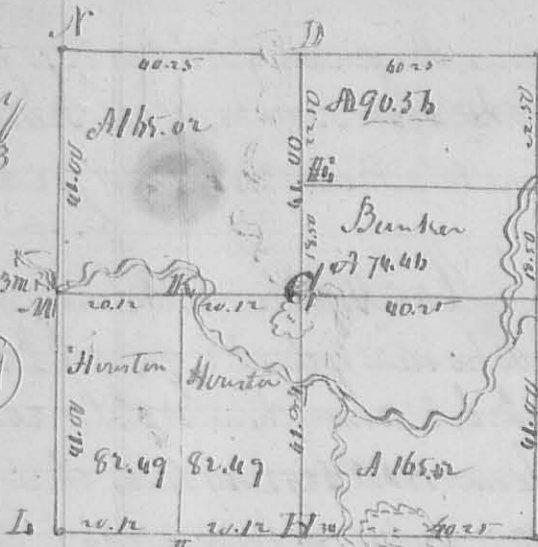 N D
40.25 40.25
A 165.02 A 90.56
41.00 41.00 22.50 22.50
H
Bunker
18.50 A 74.46 18.50
3m
M K C
20.12 20.12 40.25
Houston Houston
41.00 41.00 41.00
82.49 82.49 A 165.02
L 20.12 20.12 H 40.25